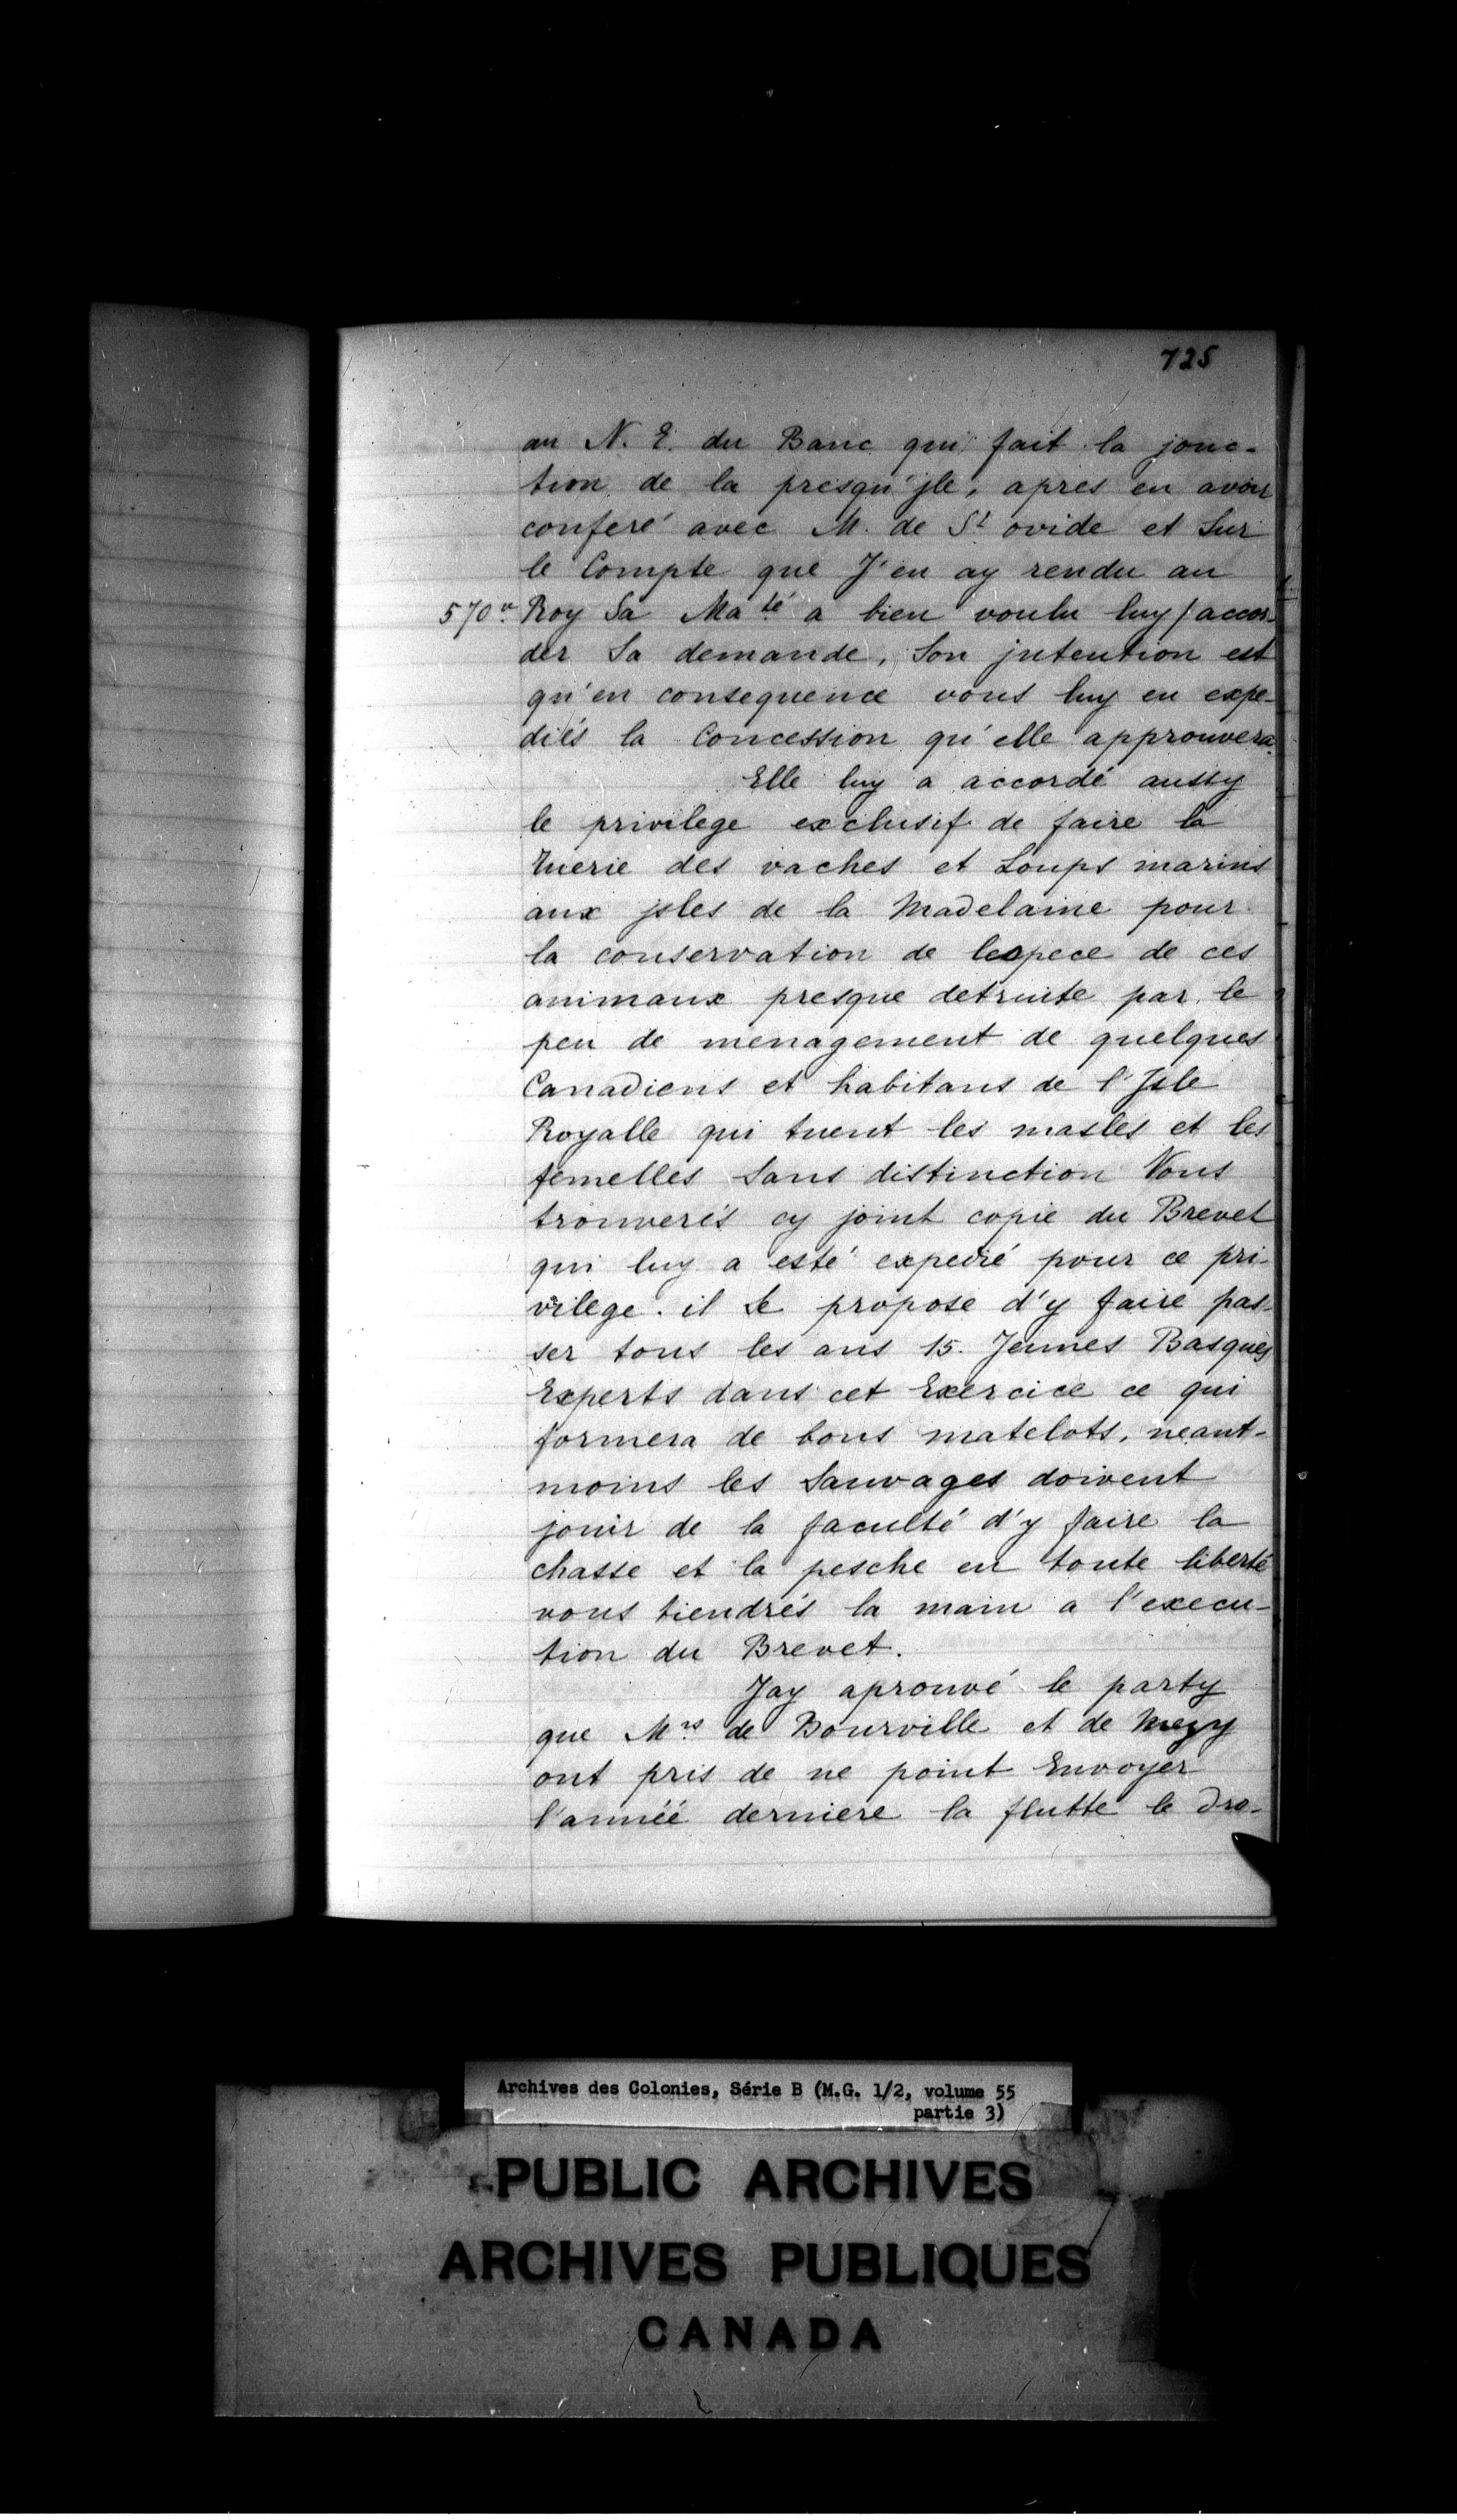 725
au N. E. du Banc qui fait la jonc-
tion de la presqu'jle, apres en avoir
conferé avec M. de St ovide et Sur
le Compte que J'en ay rendu au
570v. Roy Sa Maté a bien voulu luy/accor-
der Sa demande, Son jntention est
qu'en consequence vous luy en expe-
diés la Concession qu'elle approuvera.
Elle luy a accordé aussy
le privilege exclusif de faire la
tuerie des vaches et Loups marins
aux jsles de la Madelaine pour
la conservation de lespece de ces
animaux presque detruite par le
peu de menagement de quelques
Canadiens et habitans de l'Isle
Royalle qui tuent les masles et les
femelles Sans distinction Vous
trouverés cy joint copie du Brevet
qui luy a esté expedié pour ce pri-
vilege. il Se propose d'y faire pas-
ser tous les ans 15. Jeunes Basques
Experts dans cet Exercice ce qui
formera de bons matelots, neant-
moins les Sauvages doivent
jouir de la faculté d'y faire la
chasse et la pesche en toute liberté
vous tiendrés la main a l'execu-
tion du Brevet.
Jay aprouvé le party
que Mrs de Bourville et de Mezy
ont pris de ne point Envoyer
l'année derniere la flutte le Dro-
Archives des Colonies, Série B (M.G. 1/2, volume 55
partie 3)
PUBLIC ARCHIVES
ARCHIVES PUBLIQUES
CANADA